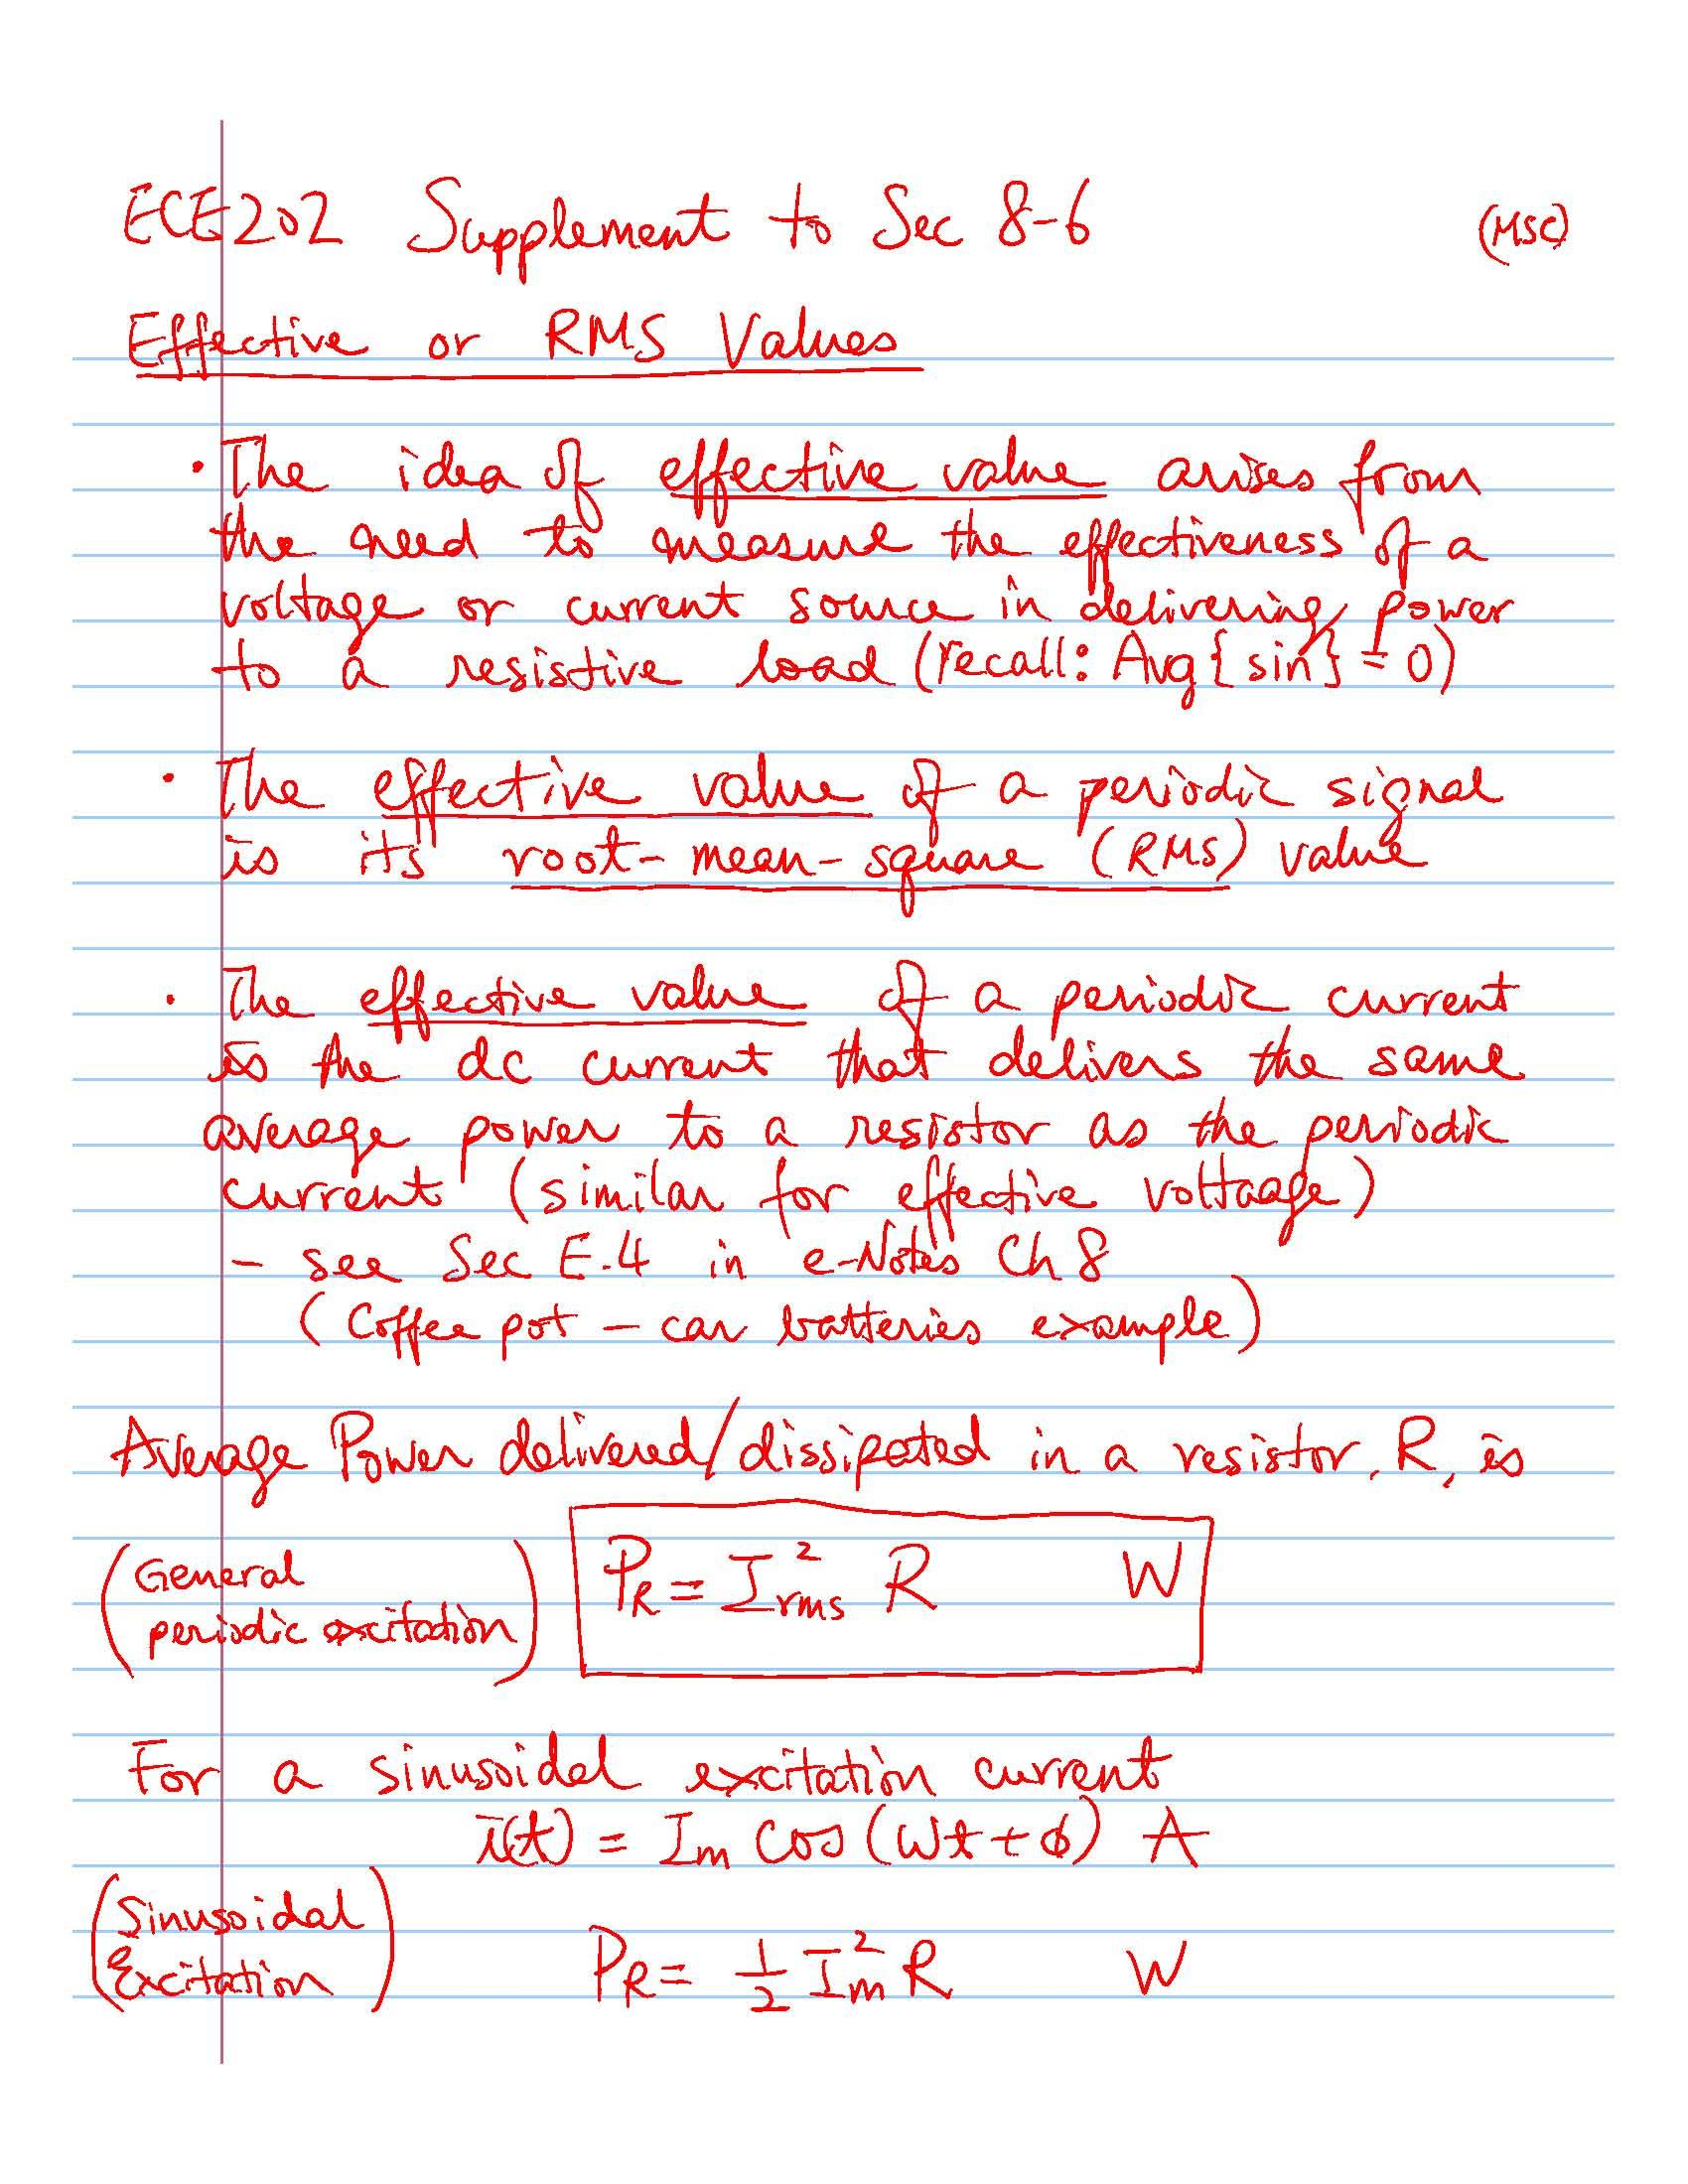 ECE202 Supplement to Sec 8-6 (MSC)
Effective or RMS Values
· The idea of effective value arises from
the need to measure the effectiveness of a
voltage or current source in delivering power
to a resistive load (recall: Avg{sin} = 0)
· The effective value of a periodic signal
is its root-mean-square (RMS) value
· The effective value of a periodic current
is the dc current that delivers the same
average power to a resistor as the periodic
current (similar for effective voltaage)
- see Sec E.4 in e-Notes Ch 8
(Coffee pot - car batteries example)
Average Power delivered/dissipated in a resistor, R, is
(General periodic excitation) P_R = I_rms² R W
For a sinusoidal excitation current
i(t) = I_m cos(ωt + φ) A
(Sinusoidal Excitation) P_R = 1/2 I_m² R W